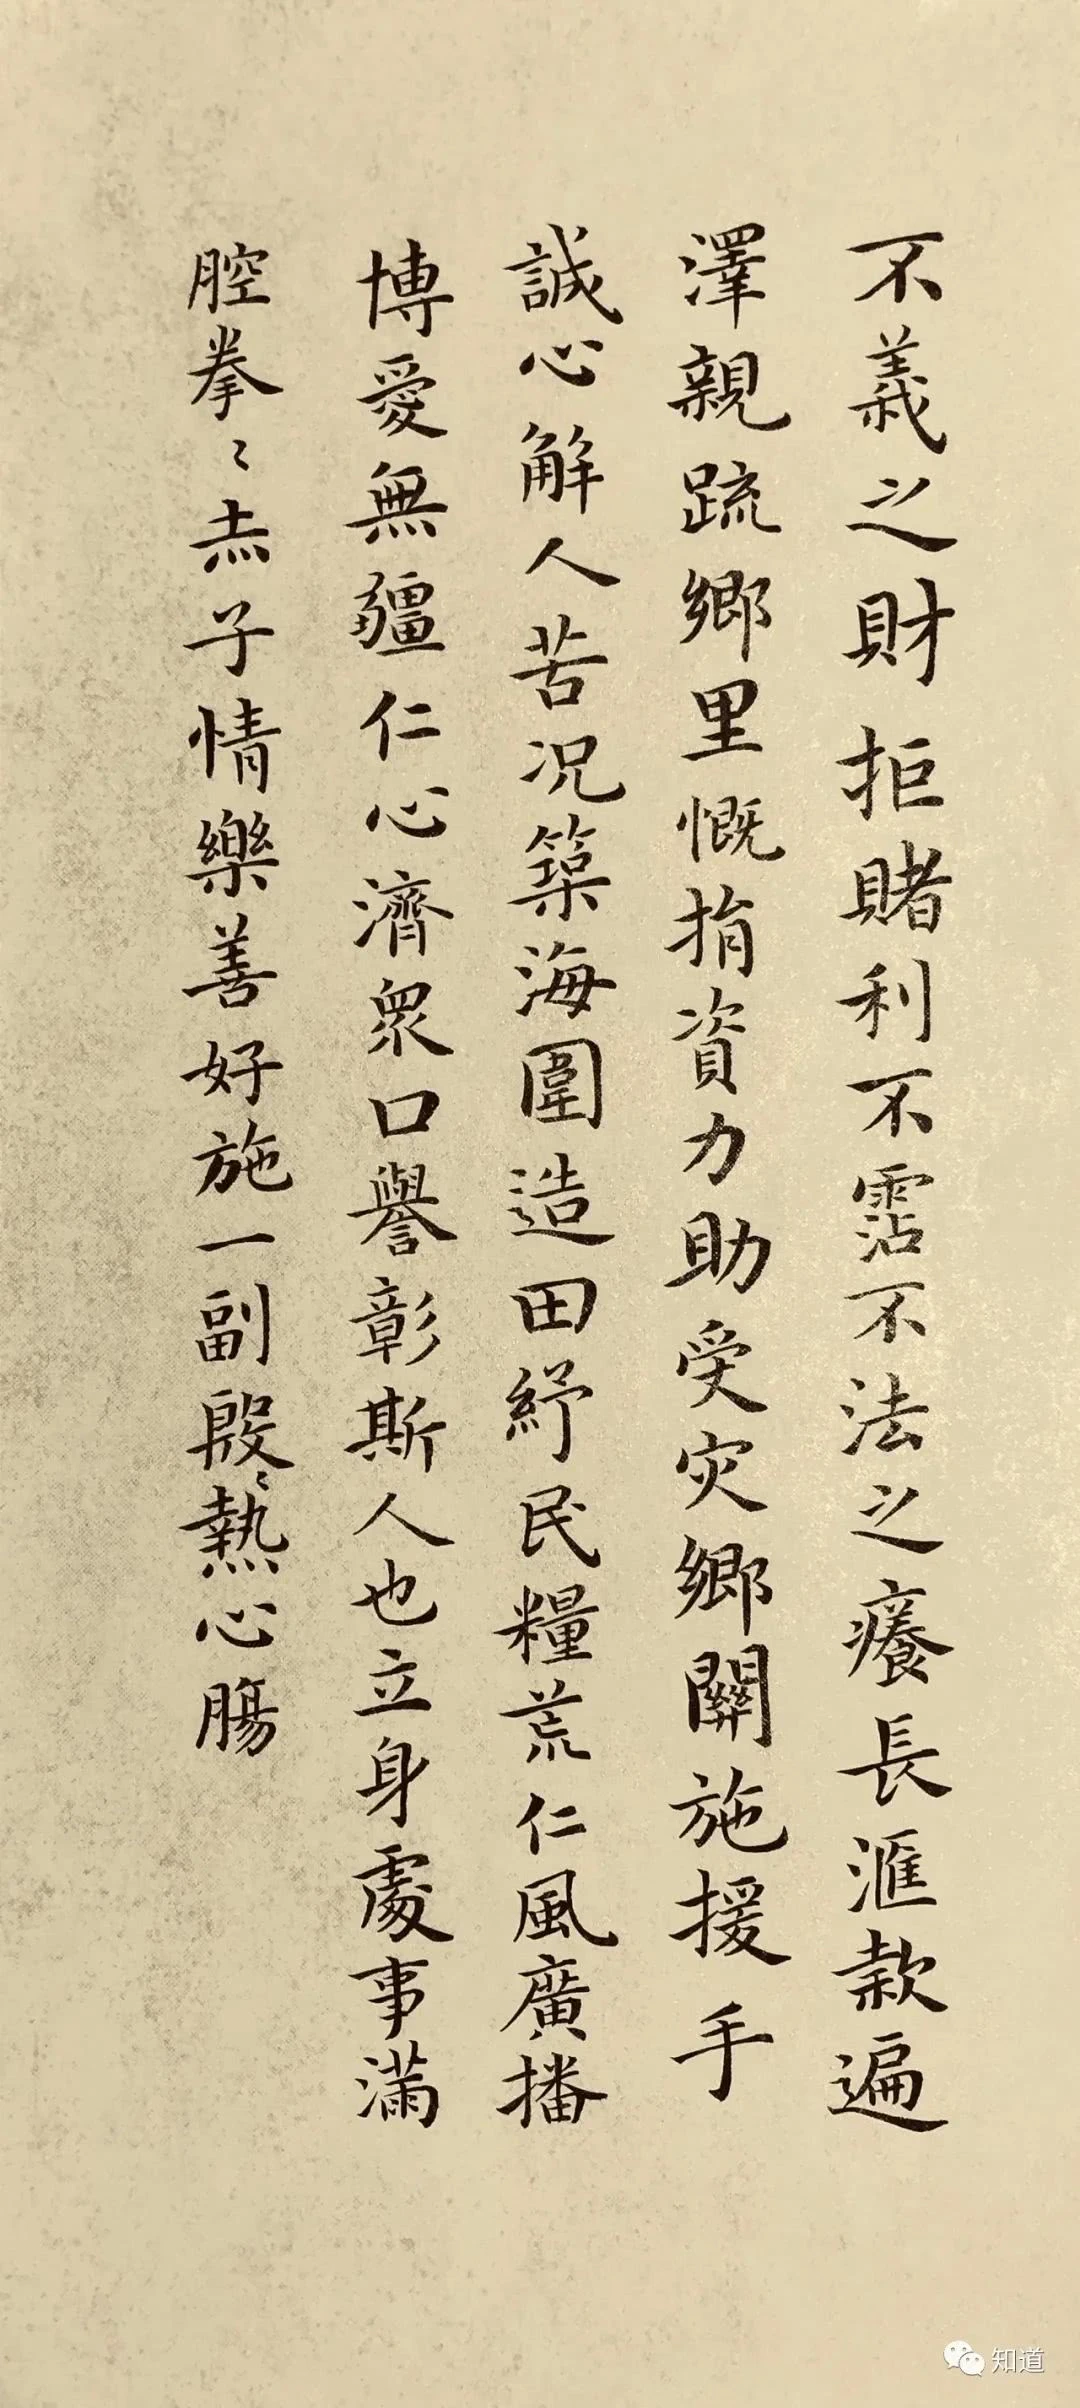 不義之財拒賭利不霑不法之癢長滙款遍
澤親疏鄉里慨捐資力助受灾鄉關施援手
誠心解人苦况築海圍造田紓民糧荒仁風廣播
博愛無疆仁心濟衆口譽彰斯人也立身處事滿
腔拳〻赤子情樂善好施一副殷〻熱心腸
知道